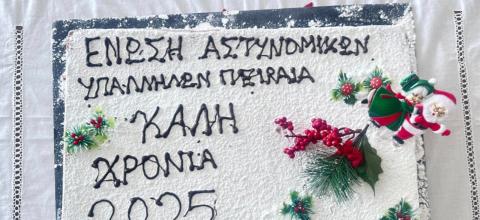 ΕΝΩΣΗ ΑΣΤΥΝΟΜΙΚΩΝ
ΥΠΑΛΛΗΛΩΝ ΠΕΙΡΑΙΑ
ΚΑΛΗ
ΧΡΟΝΙΑ
2025